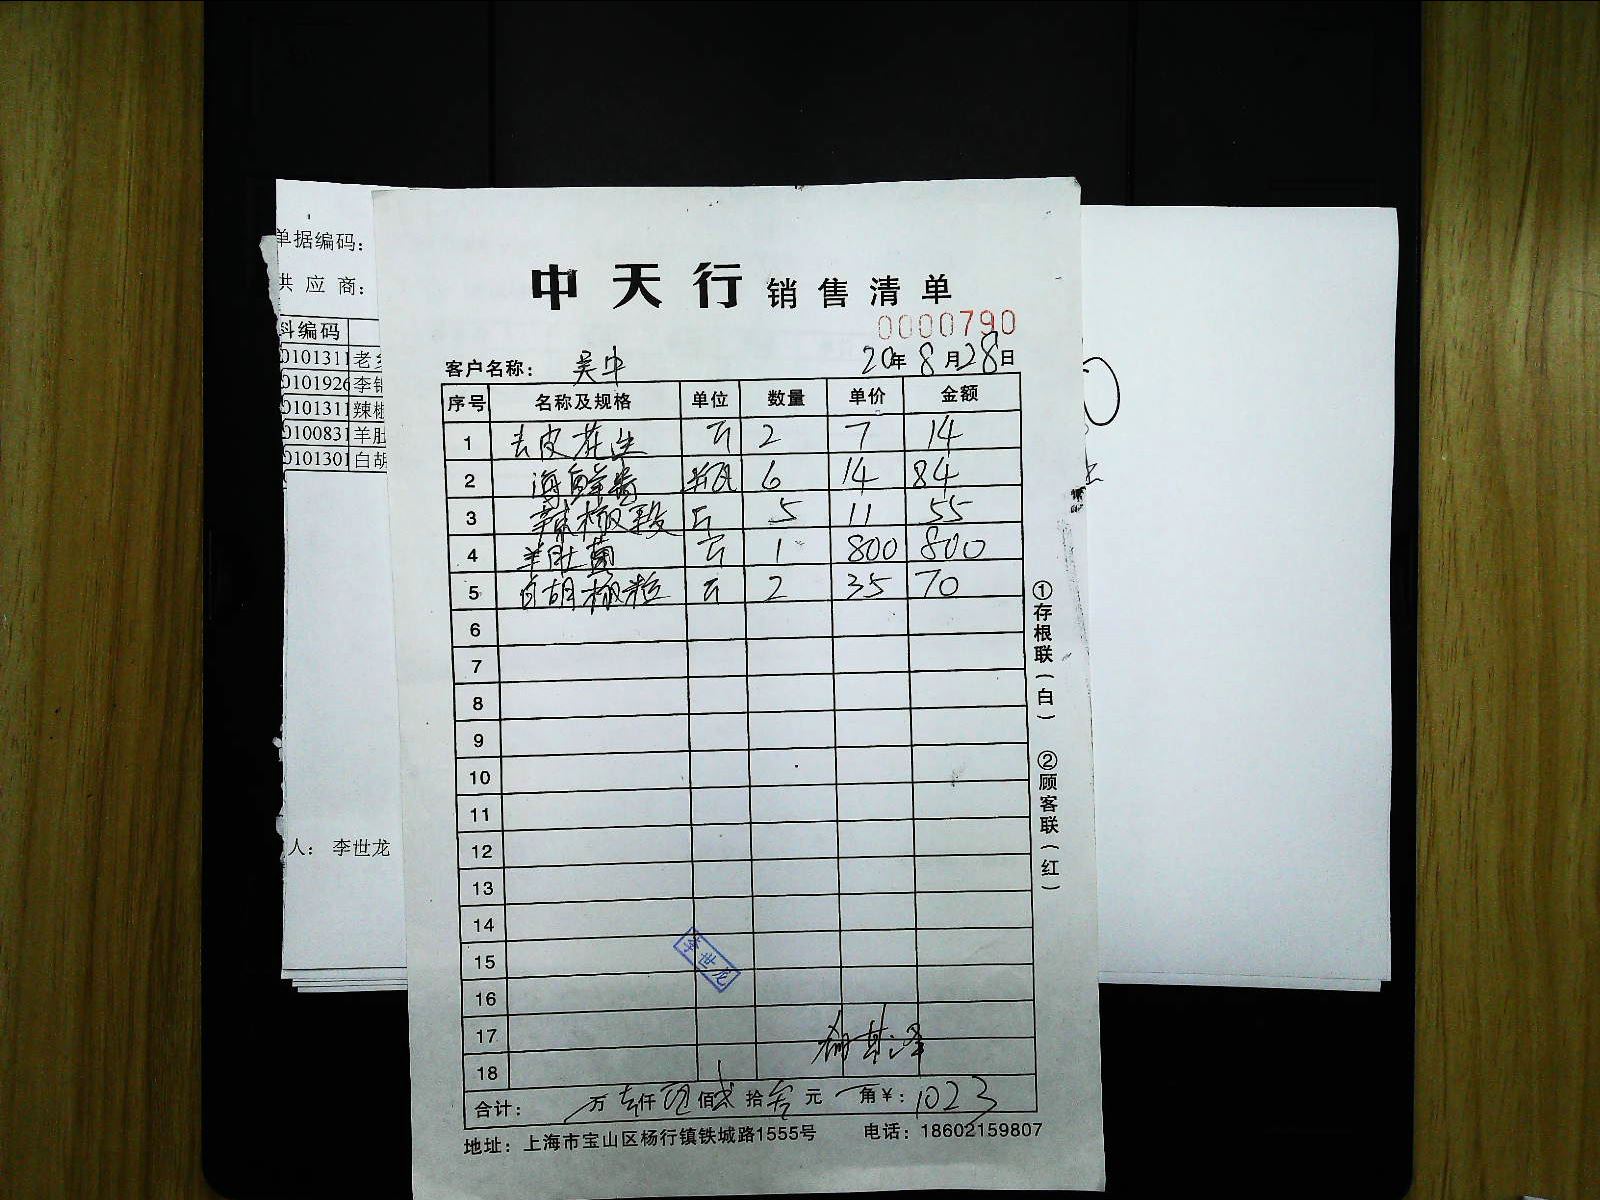 单据编码：
供 应 商：
料编码
0101311 老
0101926 李锦
0101311 辣椒
0100831 羊肚
0101301 白胡
人： 李世龙
中天行 销售清单
0000790
客户名称： 吴中 20年8月28日
序号 名称及规格 单位 数量 单价 金额
1 去皮花生 斤 2 7 14
2 海鲜酱 瓶 6 14 84
3 辣椒段 斤 5 11 55
4 羊肚菌 斤 1 800 800
5 白胡椒粒 斤 2 35 70
6
7
8
9
10
11
12
13
14
15
16
17
18
李世龙
合计： 万 仟 佰 拾 元 角 ¥：1023
地址：上海市宝山区杨行镇铁城路1555号 电话：18602159807
①存根联（白） ②顾客联（红）